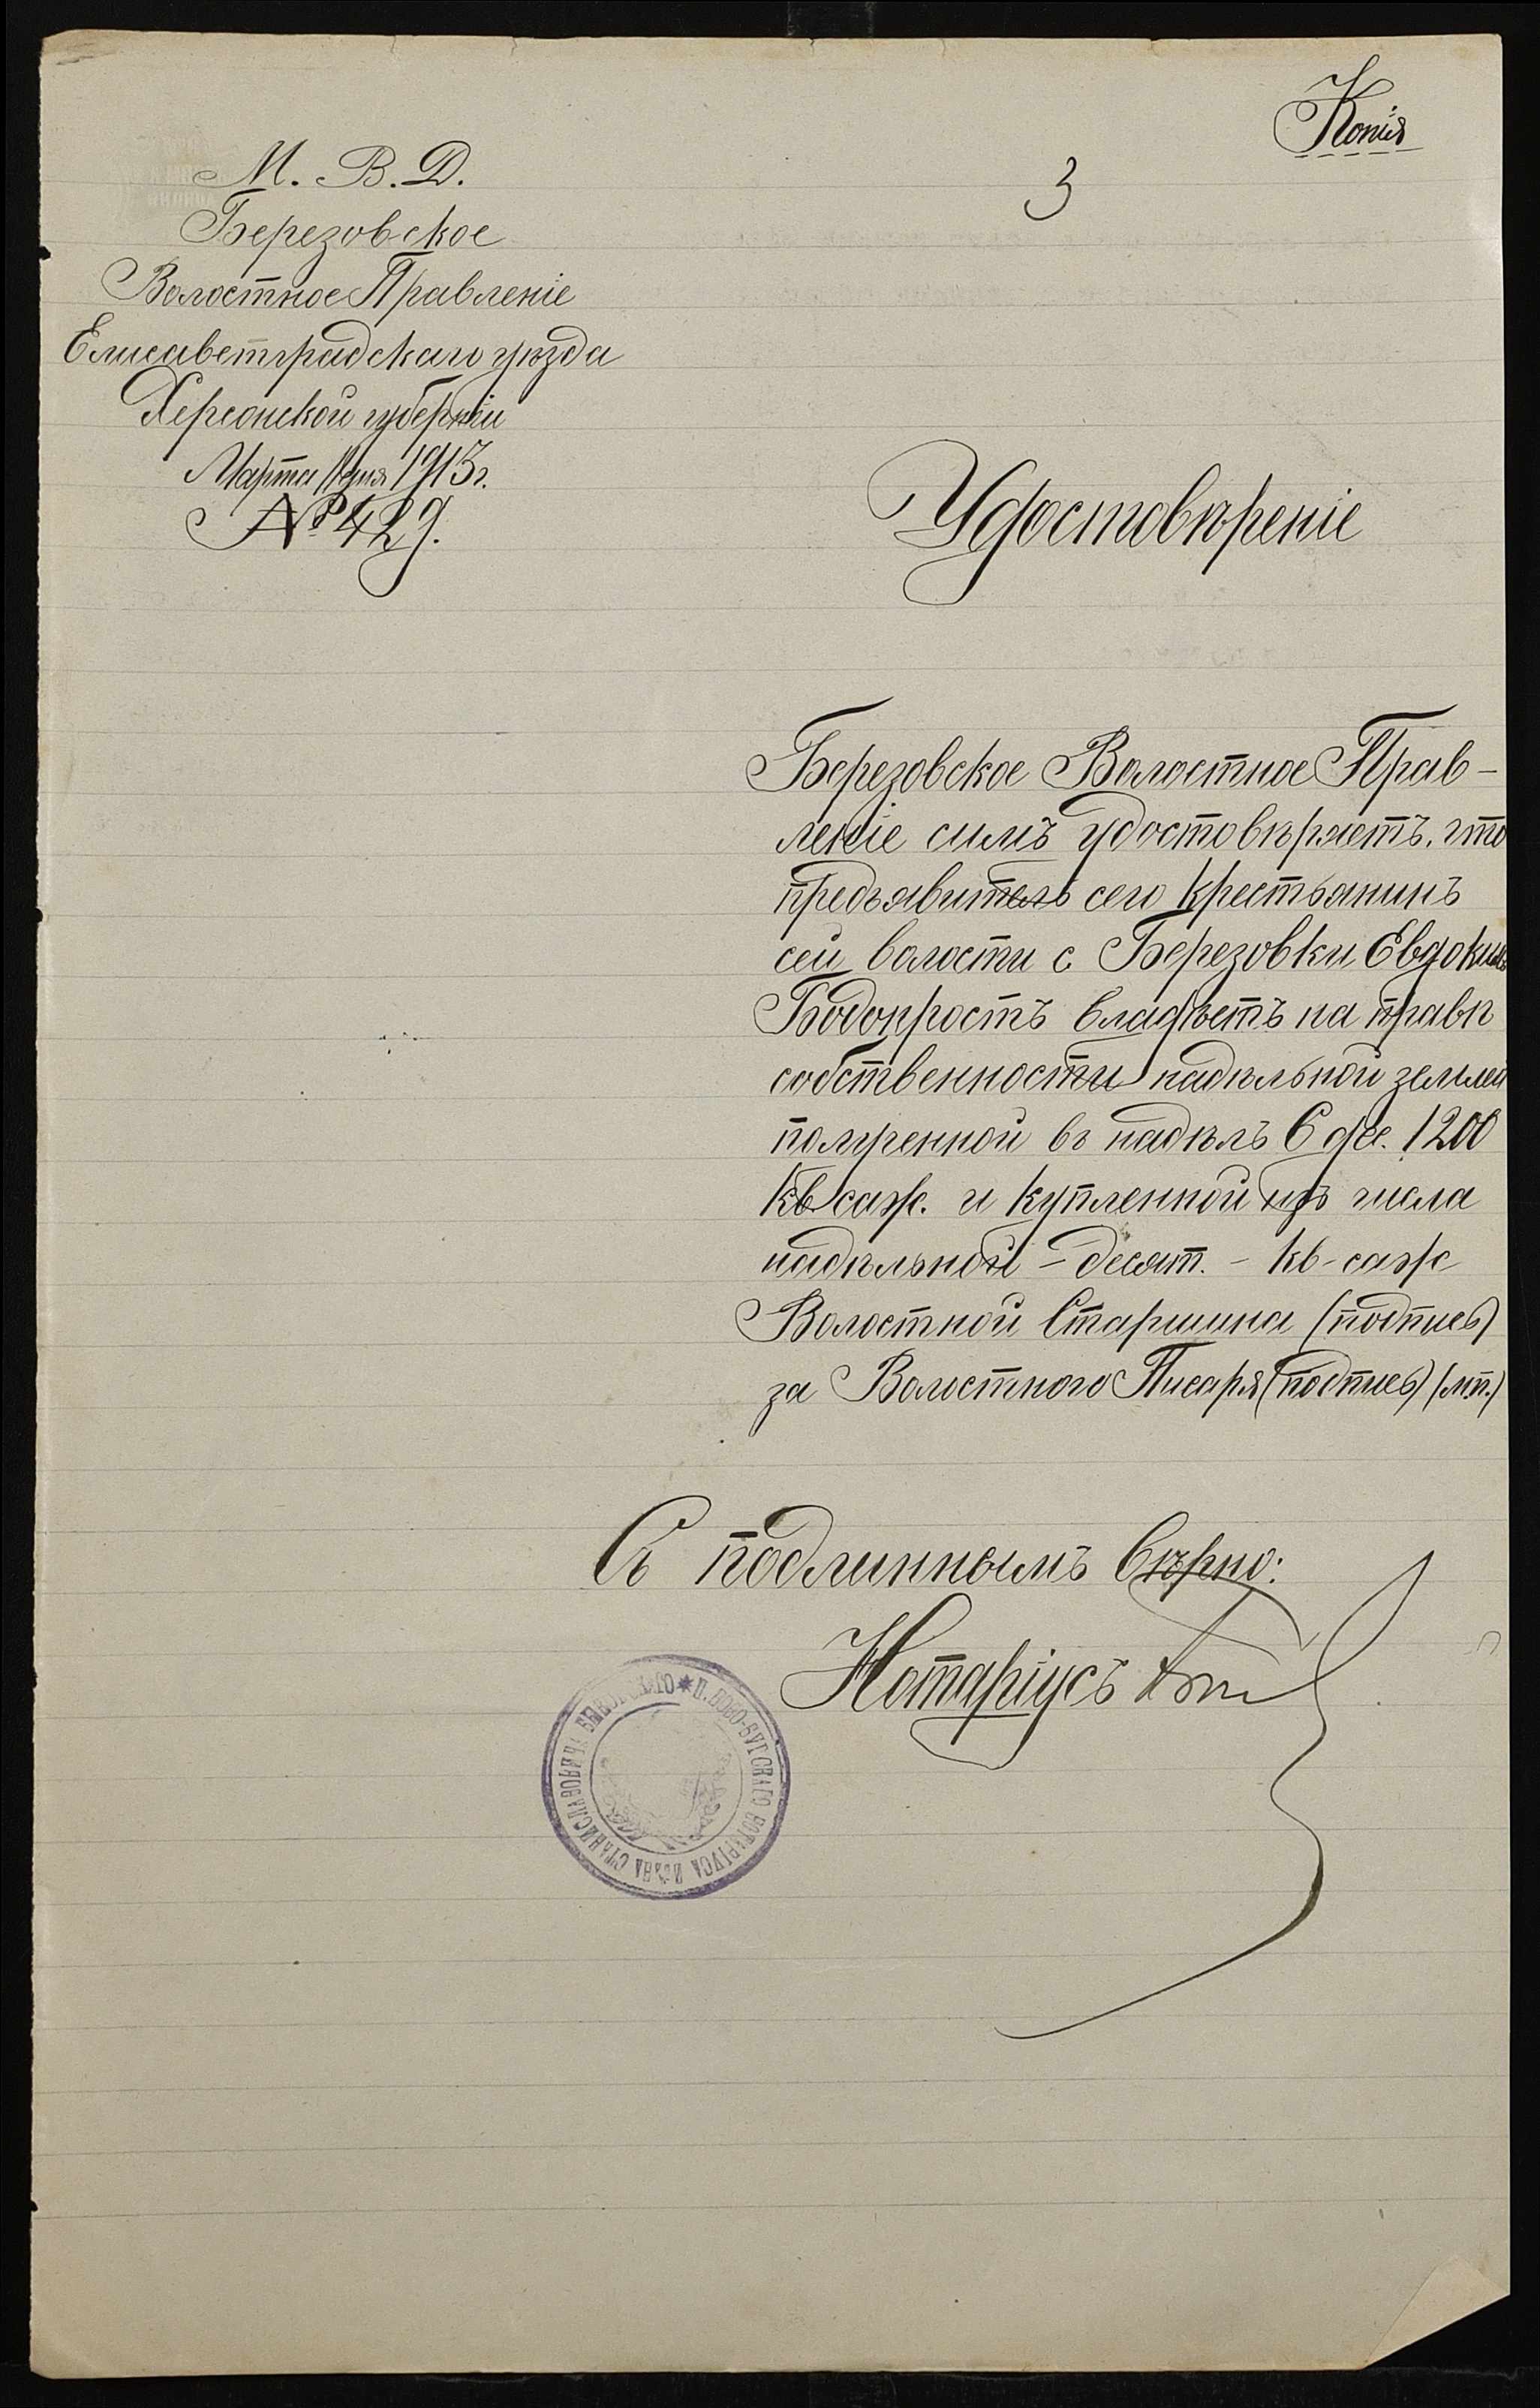 Копія
3
М. В. Д.
Березовское
Волостное Правленіе
Елисаветградскаго уѣзда
Херсонской губерніи
Марта 11 дня 1913 г.
№ 429.
Удостовѣреніе
Березовское Волостное Прав-
леніе симъ удостовѣряетъ, что
предъявитель сего крестьянинъ
сей волости с Березовки Евдокимъ
Бодопростъ владѣетъ на правѣ
собственности надѣльной землей
полученной въ надѣлъ 6 дес. 1200
кв саж. и купленной изъ числа
надѣльной - десят. - кв-саж
Волостной Старшина (подпись)
за Волостного Писаря (подпись) (мп.)
Съ подлиннымъ вѣрно:
Нотаріусъ
П. НОВО-БУГСКАГО НОТАРІУСА ИВАНА СТАНИСЛАВОВИЧА